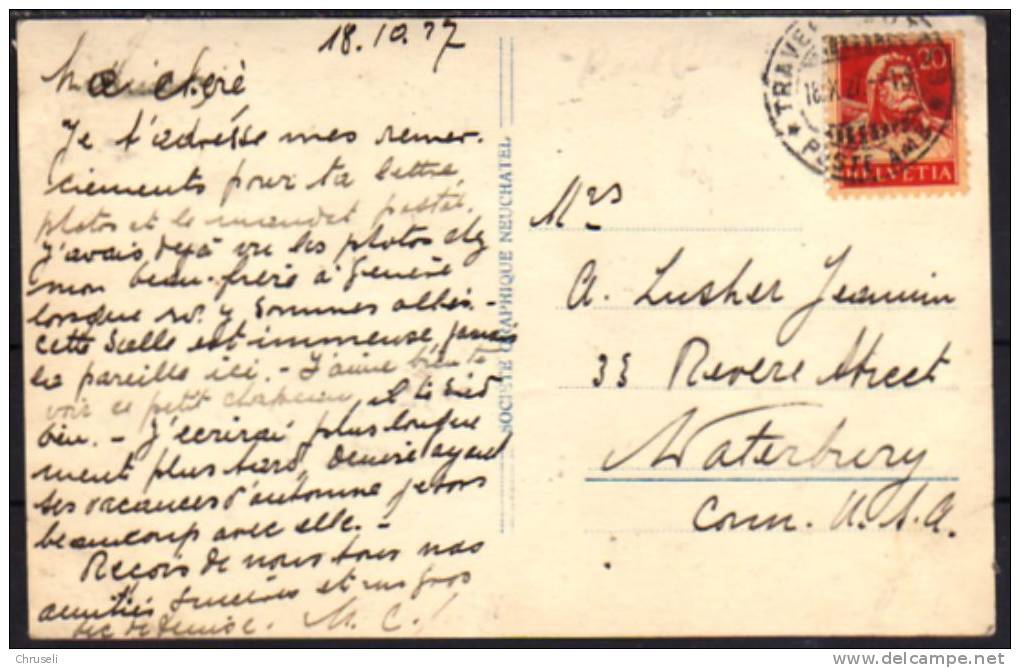 18.10.27
Ma chère
Je t'adresse mes remer-
ciements pour ta lettre,
photos et le mandat postal.
J'avais déjà vu les photos chez
mon beau-frère à Genève
lorsque ns. y sommes allés -
cette Salle est immense, jamais
la pareille ici. - J'aime bien te
voir ce petit chapeau, il te sied
bien. - J'écrirai plus longue
ment plus tard, Denise ayant
ses vacances d'automne je sors
beaucoup avec elle. -
Reçois de nous tous nos
amitiés sincères et un gros
bec de Denise. M. C.
SOCIÉTÉ GRAPHIQUE NEUCHATEL
TRAVERS
18.X.27
POSTE AMB
20
HELVETIA
Mrs
A. Lusher Jeannin
33 Revere Street
Waterbury
Conn. U.S.A.
Chruseli
delcampe.net